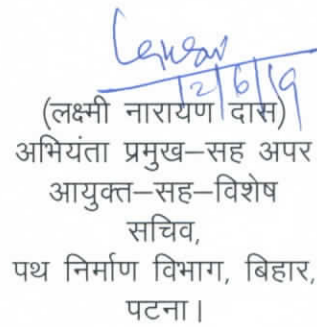 12/6/19
(लक्ष्मी नारायण दास)
अभियंता प्रमुख–सह अपर
आयुक्त–सह–विशेष
सचिव,
पथ निर्माण विभाग, बिहार,
पटना।